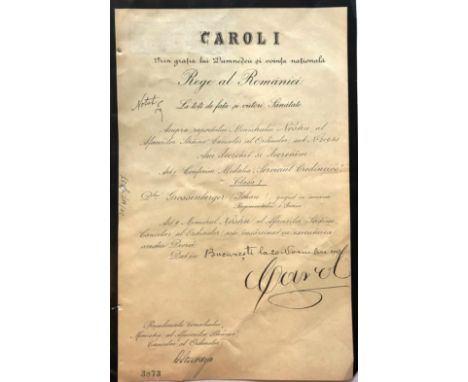 CAROL I
Prin grația lui Dumnedeu și voința națională
Rege al României
La toți de față și viitori Sănătate
Asupra raportului Ministrului Nostru al
Afacerilor Străine Cancelar al Ordinelor, sub No
Am decretat și decretăm
Art. Conferim Medalia "Serviciul Credincios"
Clasa I
Grossenberger
Art. Ministrul Nostru al Afacerilor Străine
Cancelar al Ordinelor, este însărcinat cu executarea
acestui Decret
Dat în București la 20 Noembrie
Carol
Președintele Consiliului
Ministru al Afacerilor Străine
Cancelar al Ordinelor
3873